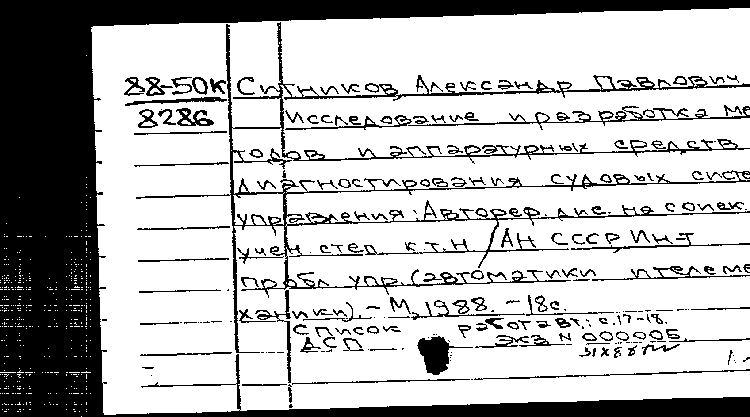 88-50К Ситников, Александр Павлович.
8286 Исследование и разработка ме
тодов и аппаратурных средств
диагностирования судовых систе
управления: Автореф. дис. на соиск.
учен. степ. к.т.н / АН СССР, Ин-т
пробл. упр. (автоматики и телеме
ханики). - М, 1988. - 18с.
Список работ авт.: с.17-18.
ДСП Экз N 000005